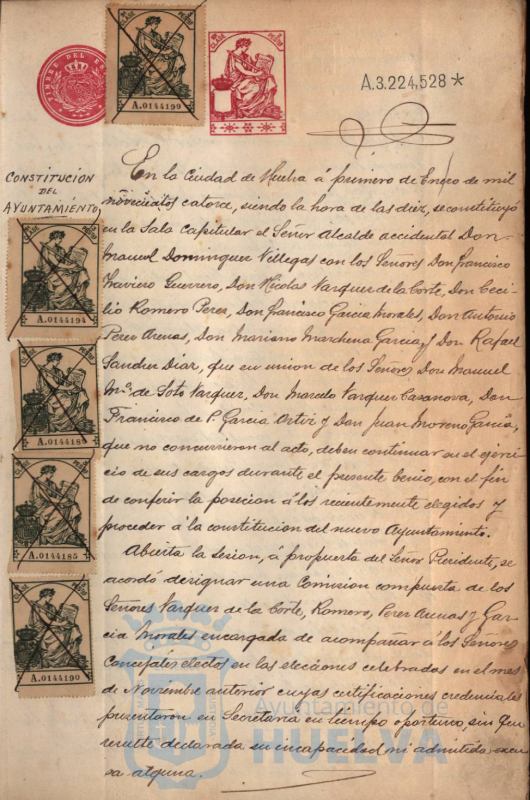 TIMBRE DEL ES
CLASE
PESETAS
A.0144199
A.3.224,528 *
CONSTITUCIÓN
DEL
AYUNTAMIÉNTO
En la Ciudad de Huelva á primero de Enero de mil
novecientos catorce, siendo la hora de las diez, se constituyó
en la Sala Capitular el Señor Alcalde accidental Don
Manuel Dominguez Villegas con los Señores Don Francisco
Traviero Guerrero, Don Nicolas Vazquez de la Corte, Don Ceci-
lio Romero Perez, Don Francisco Garcia Morales, Don Antonio
Perez Arenas, Don Mariano Marchena Garcia y Don Rafael
Sanchez Diaz, que en union de los Señores Don Manuel
Mª de Soto Vazquez, Don Marcelo Vazquez Casanova, Don
Francisco de P. Garcia Ortiz y Don Juan Moreno Garcia,
que no concurrieron al acto, deben continuar en el ejerci-
cio de sus cargos durante el presente bienio, con el fin
de conferir la posesion á los recientemente elegidos y
proceder á la constitucion del nuevo Ayuntamiento.
Abierta la sesion, á propuesta del Señor Presidente, se
acordó designar una Comision compuesta de los
Señores Vazquez de la Corte, Romero, Perez Arenas y Gar-
cia Morales encargada de acompañar á los Señores
Concejales electos en las elecciones celebradas en el mes
de Noviembre anterior cuyas certificaciones credenciales
presentaron en Secretaria en tiempo oportuno, sin que
resulte declarada su incapacidad ni admitida excu-
sa alguna.
A.0144194
A.0144185
A.0144190
Ayuntamiento de
HUELVA